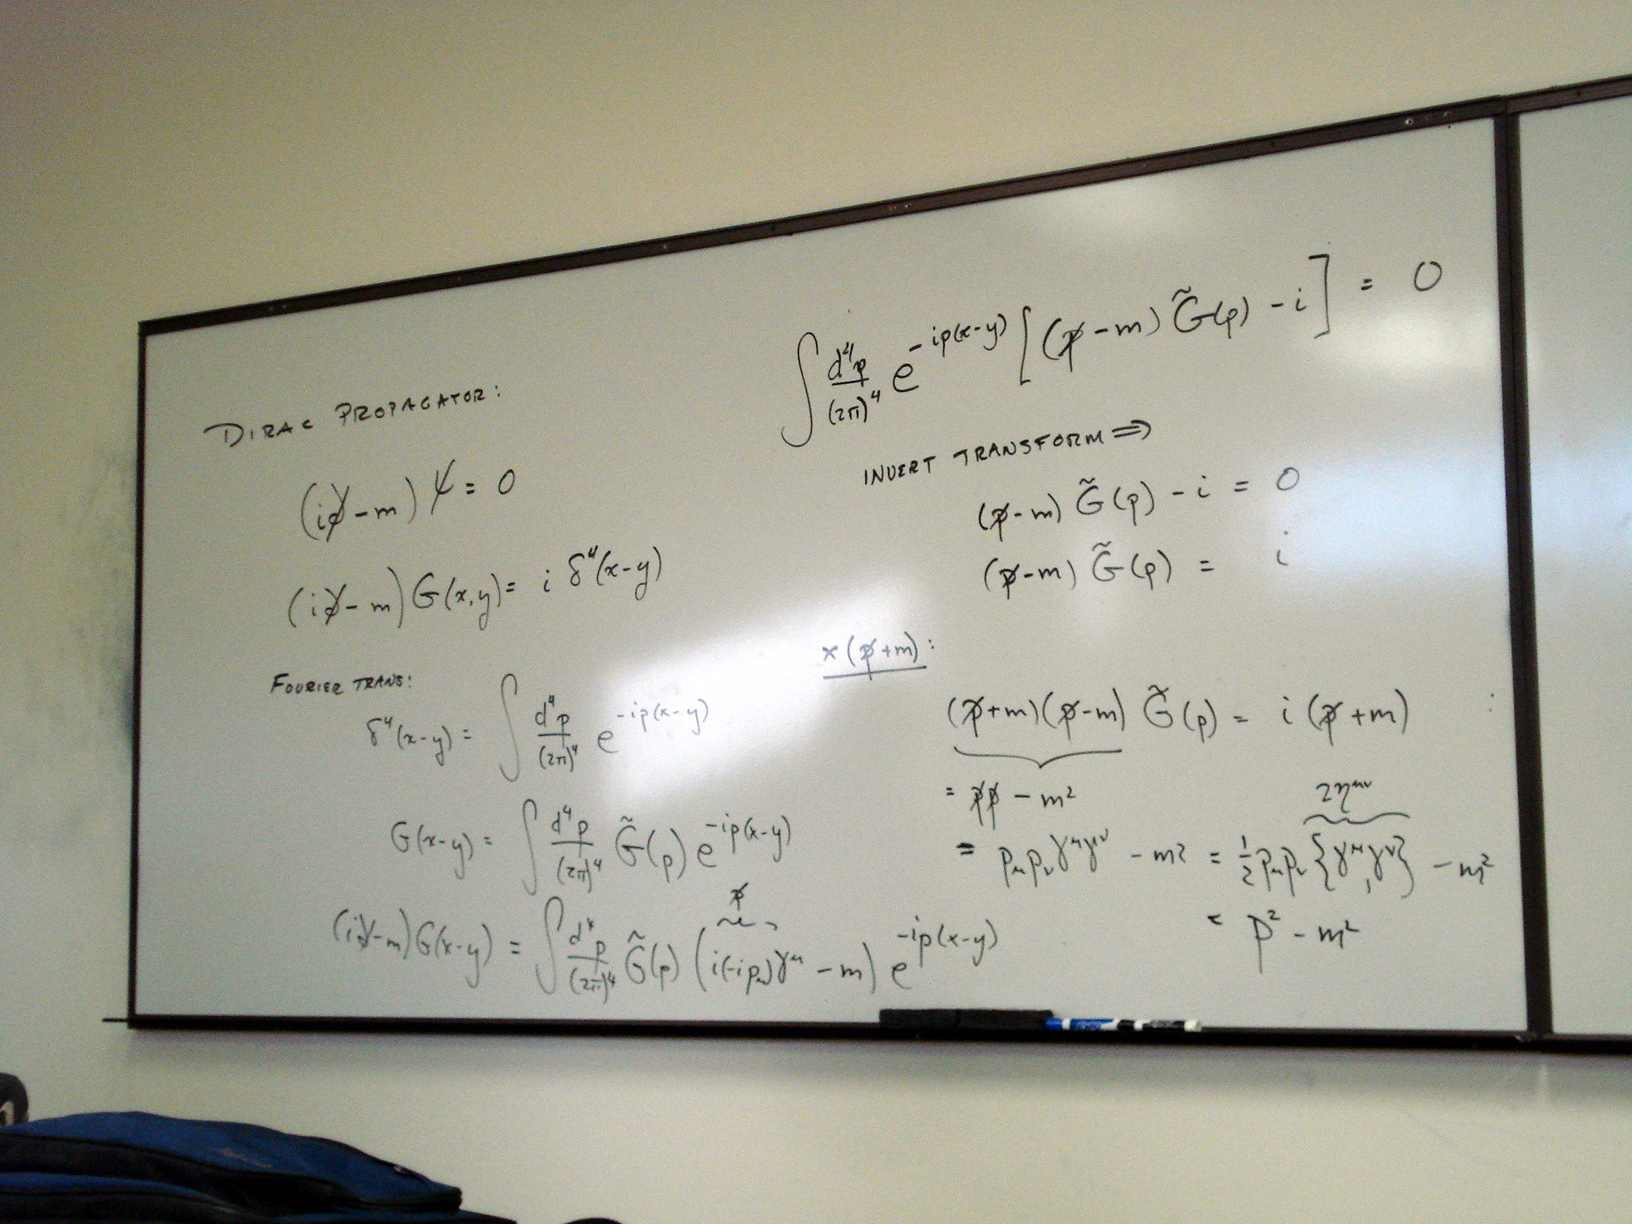 DIRAC PROPAGATOR:
(i∂̸ - m) ψ = 0
(i∂̸ - m) G(x,y) = i δ⁴(x-y)
FOURIER TRANS:
δ⁴(x-y) = ∫ d⁴p/(2π)⁴ e^{-ip(x-y)}
G(x-y) = ∫ d⁴p/(2π)⁴ G̃(p) e^{-ip(x-y)}
p̸
(i∂̸-m)G(x-y) = ∫ d⁴p/(2π)⁴ G̃(p) (i(-ip_μ)γ^μ - m) e^{-ip(x-y)}
∫ d⁴p/(2π)⁴ e^{-ip(x-y)} [(p̸ - m) G̃(p) - i] = 0
INVERT TRANSFORM ⇒
(p̸ - m) G̃(p) - i = 0
(p̸ - m) G̃(p) = i
x (p̸ + m):
(p̸ + m)(p̸ - m) G̃(p) = i (p̸ + m)
= p̸p̸ - m²
2η^{μν}
= p_μ p_ν γ^μ γ^ν - m² = ½ p_μ p_ν {γ^μ, γ^ν} - m²
= p² - m²